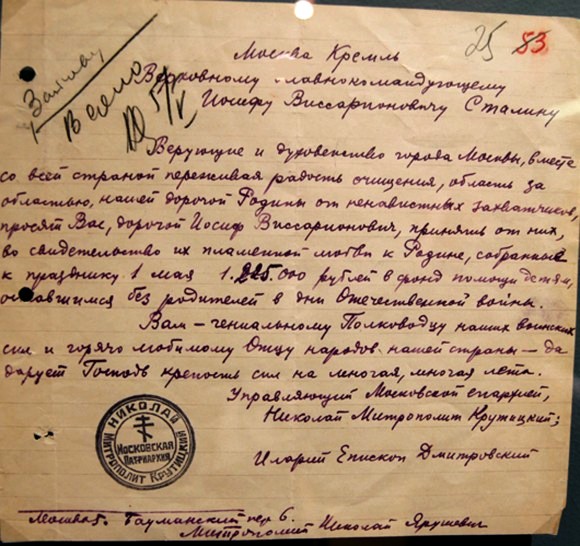 25 83
Москва Кремль
Верховному Главнокомандующему
Иосифу Виссарионовичу Сталину
Верующие и духовенство города Москвы, вместе
со всей страной переживая радость очищения, область за
областью, нашей дорогой Родины от ненавистных захватчиков,
просят Вас, дорогой Иосиф Виссарионович, принять от них,
во свидетельство их пламенной любви к Родине, собранные
к празднику 1 мая 1.225.000 рублей в фонд помощи детям,
оставшимся без родителей в дни Отечественной войны.
Вам – гениальному Полководцу наших воинских
сил и горячо любимому Отцу народов нашей страны – да
дарует Господь крепость сил на многая, многая лета.
Управляющий Московской епархией,
Николай Митрополит Крутицкий;
НИКОЛАЙ
МИТРОПОЛИТ КРУТИЦКИЙ
МОСКОВСКАЯ
ПАТРИАРХИЯ
Иларий Епископ Дмитровский
Москва 5. Бауманский пер 6.
Митрополит Николай Ярушевич